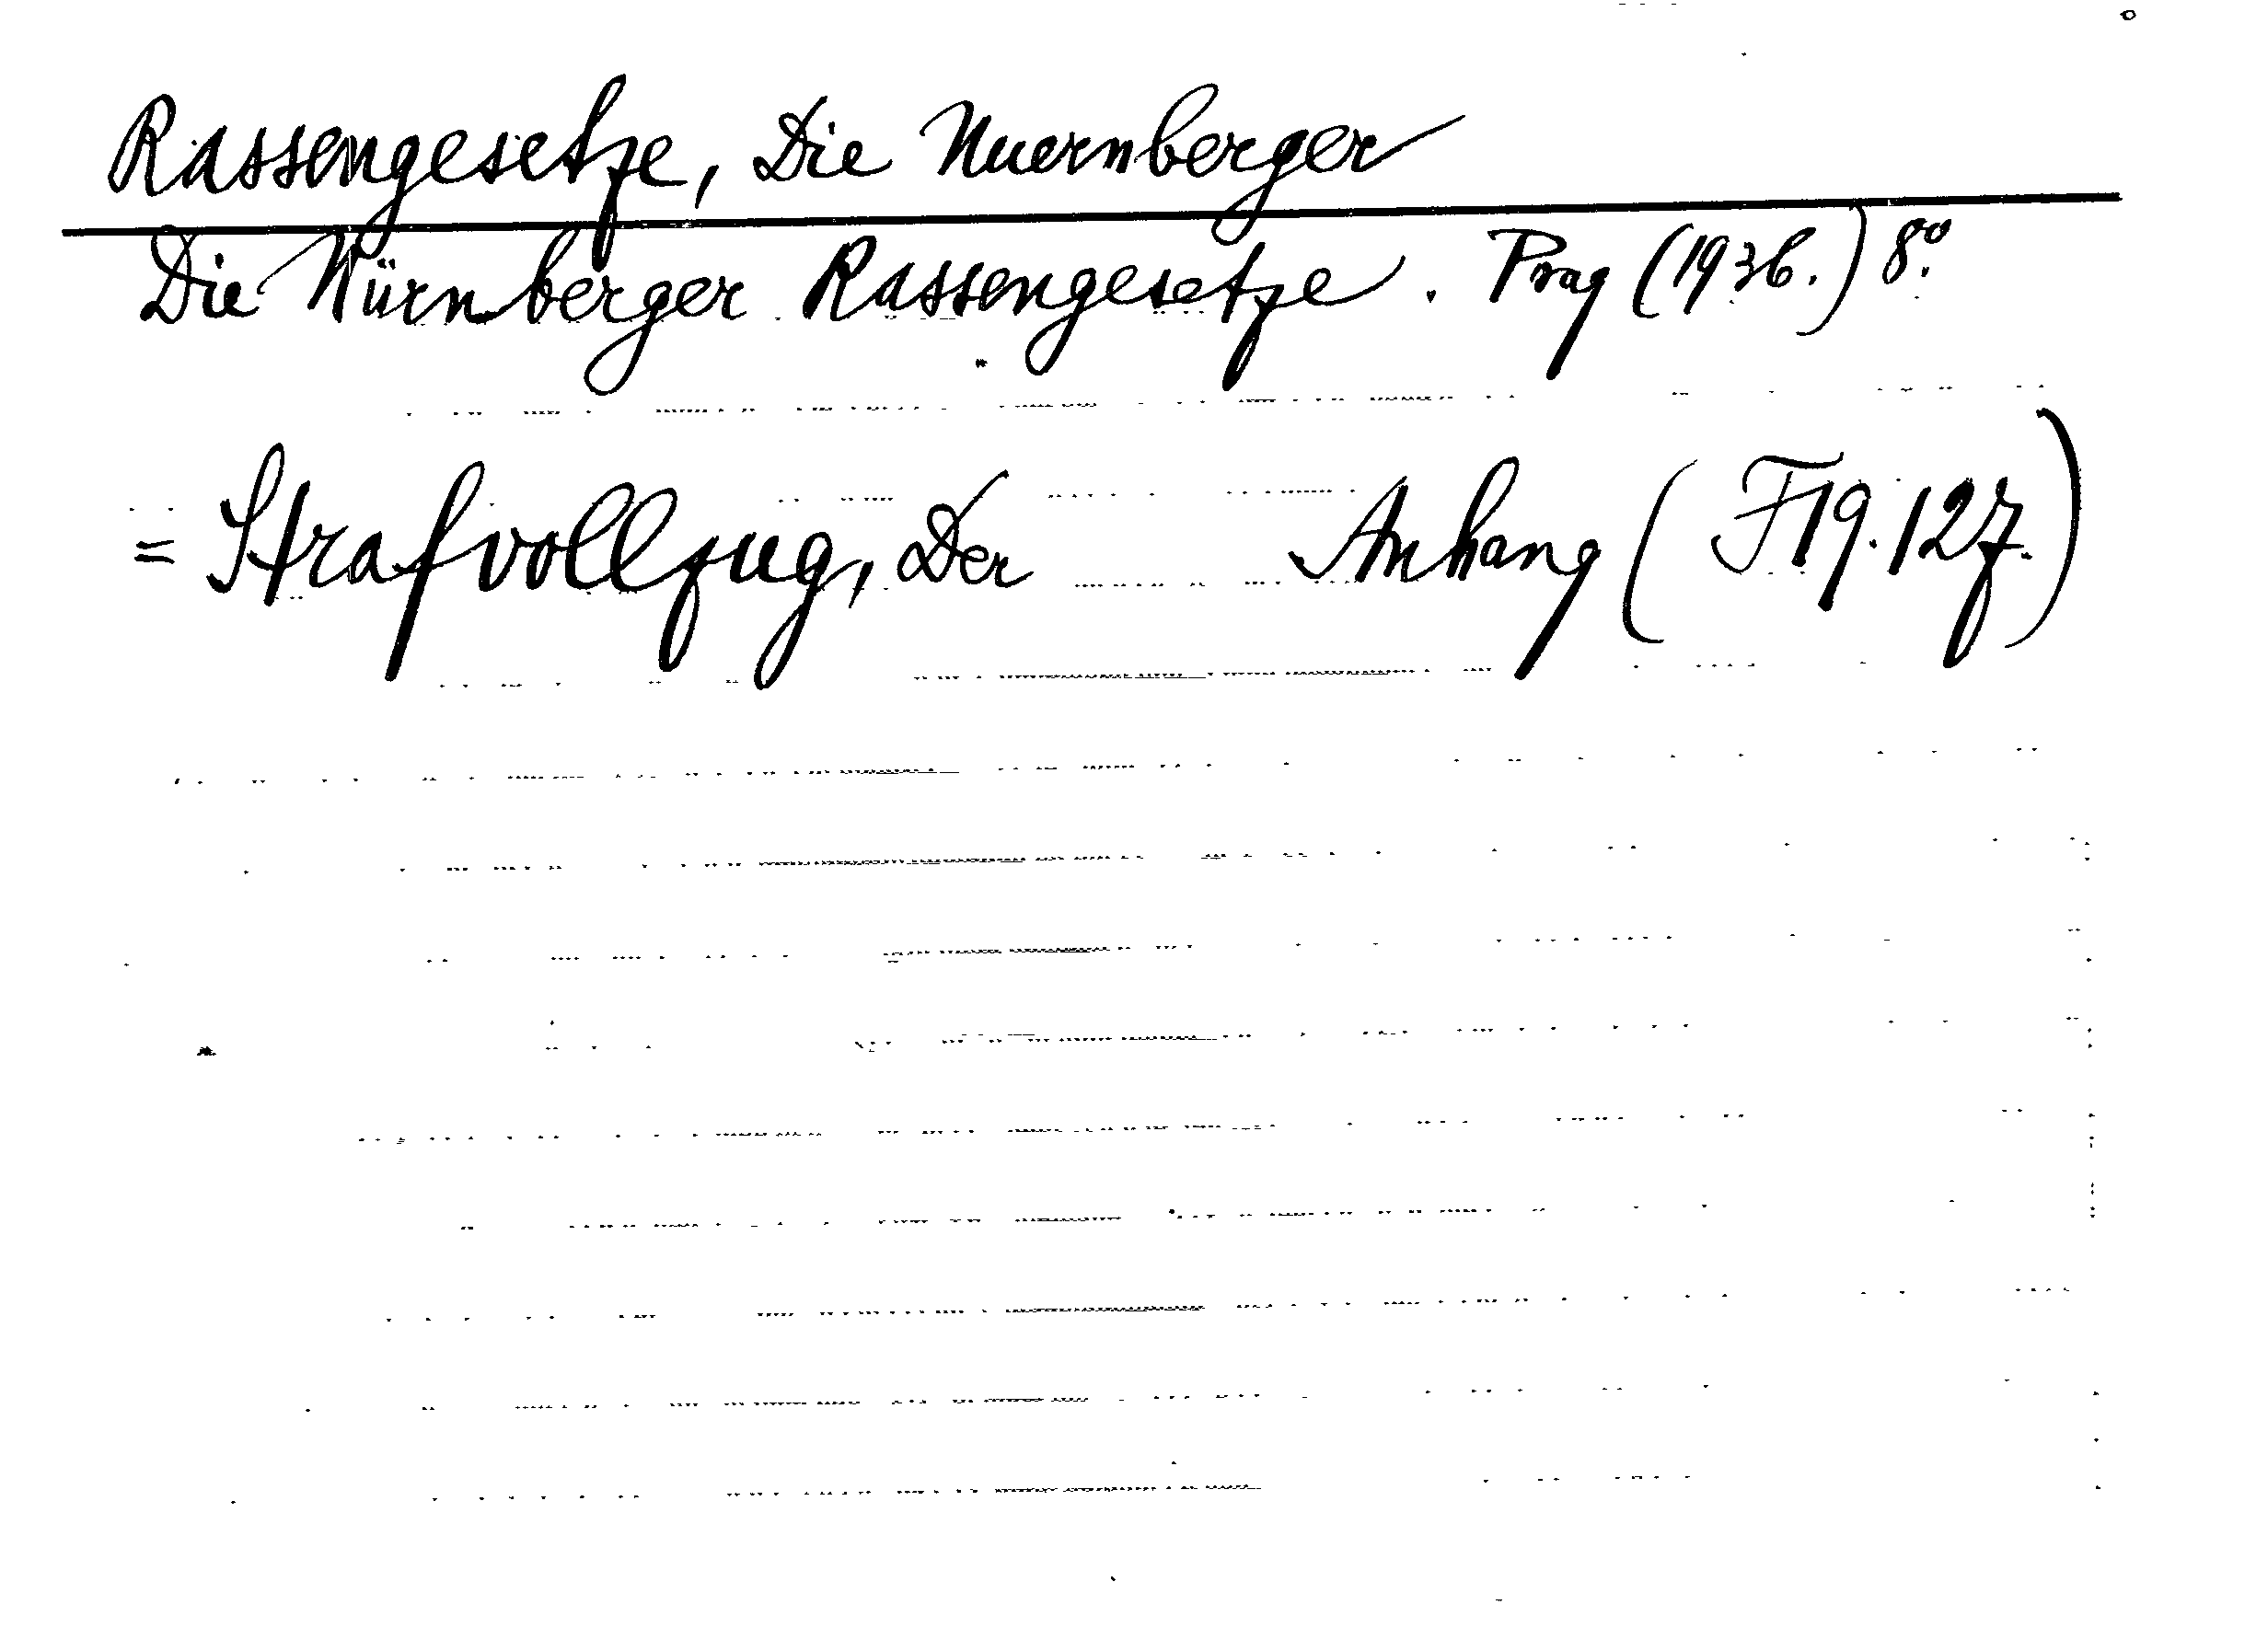 Rassengesetze, Die Nuernberger
Die Nürnberger Rassengesetze. Prag (1936.) 8.°
= Strafvollzug, Der Anhang (F19.127.)